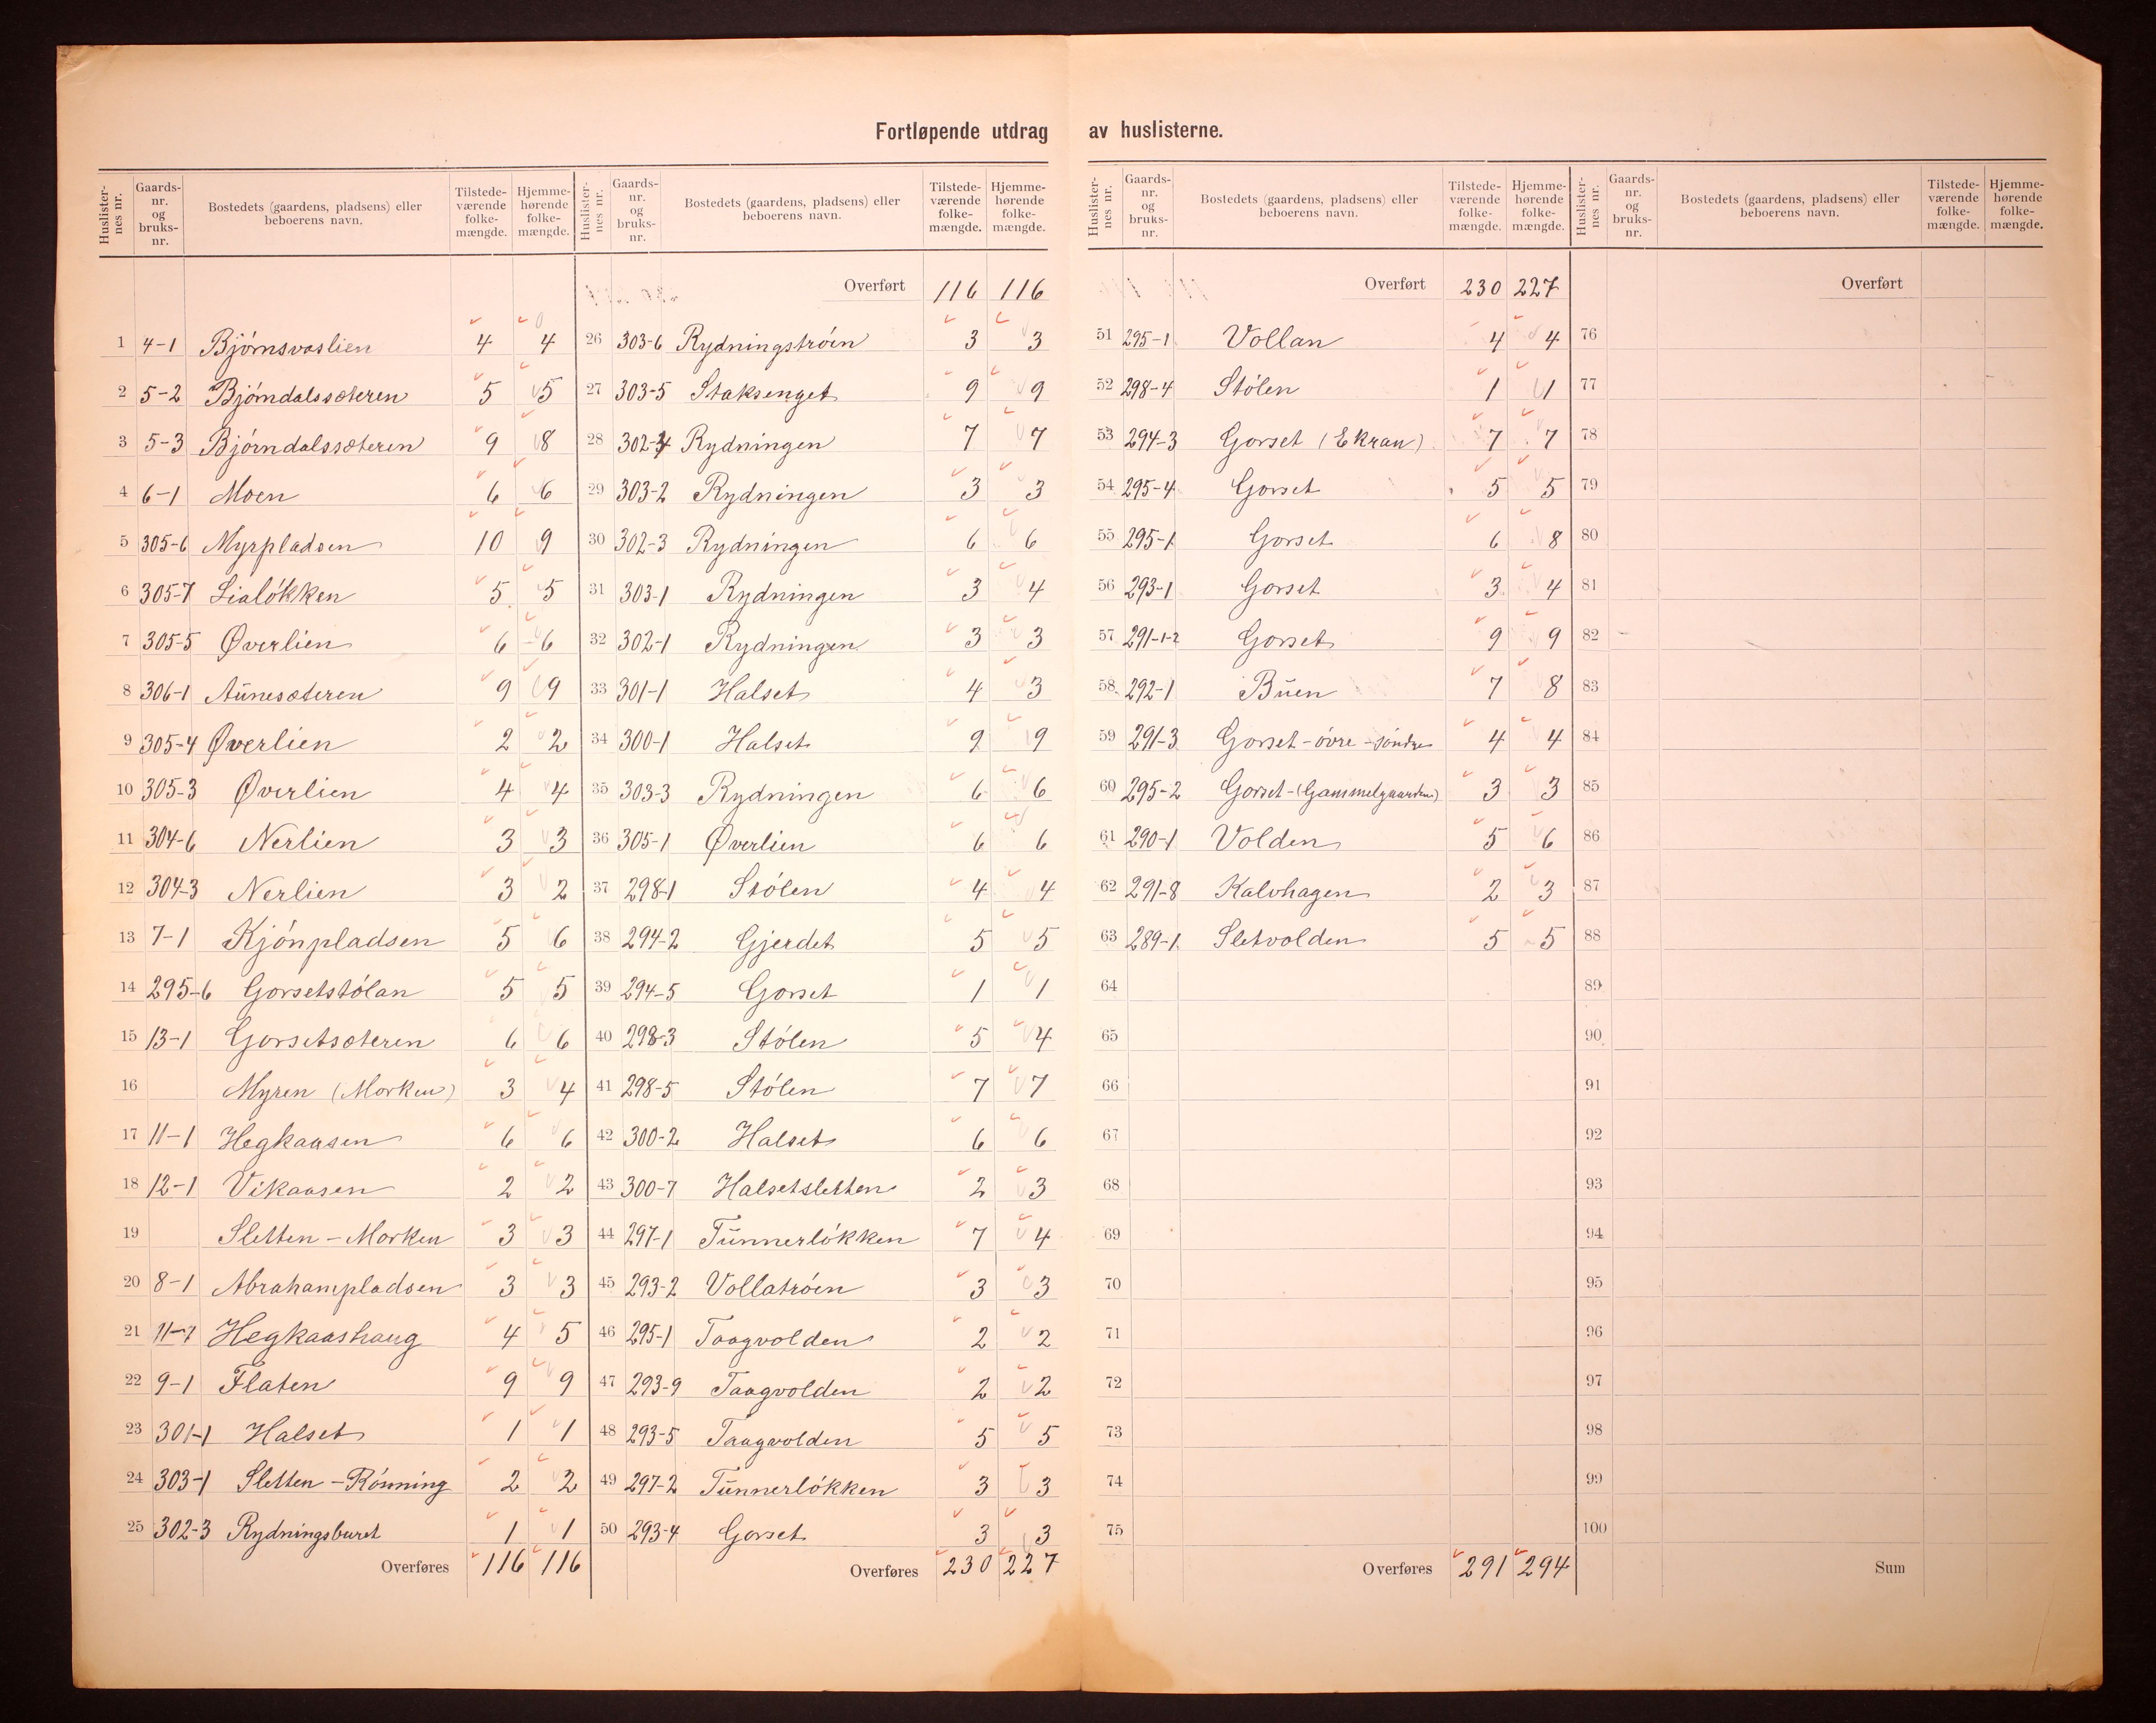 Fortløpende utdrag av huslisterne.
Huslisternes nr. Gaards-nr. og bruks-nr. Bostedets (gaardens, pladsens) eller beboerens navn. Tilstedeværende folkemængde. Hjemmehørende folkemængde.
1 4-1 Bjørnsvoslien 4 4
2 5-2 Bjørndalssæteren 5 5
3 5-3 Bjørndalssæteren 9 8
4 6-1 Moen 6 6
5 305-6 Myrpladsen 10 9
6 305-7 Lialøkken 5 5
7 305-5 Øverlien 6 6
8 306-1 Aunesæteren 9 9
9 305-4 Øverlien 2 2
10 305-3 Øverlien 4 4
11 304-6 Nerlien 3 3
12 304-3 Nerlien 3 2
13 7-1 Kjønpladsen 5 6
14 295-6 Gorsetstølan 5 5
15 13-1 Gorsetsæteren 6 6
16 Myren (Morken) 3 4
17 11-1 Hegkaasen 6 6
18 12-1 Vikaasen 2 2
19 Sletten - Morken 3 3
20 8-1 Abrahampladsen 3 3
21 Hegkaashaug 4 5
22 9-1 Flaten 9 9
23 301-1 Halset 1 1
24 303-1 Sletten - Rønning 2 2
25 302-3 Rydningsburet 1 1
Overføres 116 116
Huslisternes nr. Gaards-nr. og bruks-nr. Bostedets (gaardens, pladsens) eller beboerens navn. Tilstedeværende folkemængde. Hjemmehørende folkemængde.
Overført 116 116
26 303-6 Rydningstrøen 3 3
27 303-5 Staksenget 9 9
28 302-4 Rydningen 7 7
29 303-2 Rydningen 3 3
30 302-3 Rydningen 6 6
31 303-1 Rydningen 3 4
32 302-1 Rydningen 3 3
33 301-1 Halset 4 3
34 300-1 Halset 9 9
35 303-3 Rydningen 6 6
36 305-1 Øverlien 6 6
37 298-1 Stølen 4 4
38 294-2 Gjerdet 5 5
39 294-5 Gorset 1 1
40 298-3 Stølen 5 4
41 298-5 Stølen 7 7
42 300-2 Halset 6 6
43 300-7 Halsetsletten 2 3
44 297-1 Tunnerløkken 7 4
45 293-2 Vollatrøen 3 3
46 295-1 Taagvolden 2 2
47 293-9 Taagvolden 2 2
48 293-5 Taagvolden 5 5
49 297-2 Tunnerløkken 3 3
50 293-4 Gorset 3 3
Overføres 230 227
Huslisternes nr. Gaards-nr. og bruks-nr. Bostedets (gaardens, pladsens) eller beboerens navn. Tilstedeværende folkemængde. Hjemmehørende folkemængde.
Overført 230 227
51 295-1 Vollan 4 4
52 298-4 Stølen 1 1
53 294-3 Gorset (Ekran) 7 7
54 295-4 Gorset 5 5
55 295-1 Gorset 6 8
56 293-1 Gorset 3 4
57 291-1-2 Gorset 9 9
58 292-1 Buen 7 8
59 291-3 Gorset - øvre - søndre 4 4
60 295-2 Gorset - (Gammelgaarden) 3 3
61 290-1 Volden 5 6
62 291-8 Kalvhagen 2 3
63 289-1 Sletvolden 5 5
64
65
66
67
68
69
70
71
72
73
74
75
Overføres 291 294
Huslisternes nr. Gaards-nr. og bruks-nr. Bostedets (gaardens, pladsens) eller beboerens navn. Tilstedeværende folkemængde. Hjemmehørende folkemængde.
Overført
76
77
78
79
80
81
82
83
84
85
86
87
88
89
90
91
92
93
94
95
96
97
98
99
100
Sum